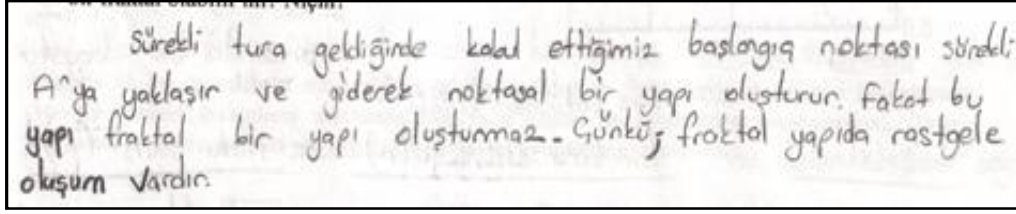 bir fraktal olabilir mi? Niçin?
Sürekli tura geldiğinde kabul ettiğimiz başlangıç noktası sürekli
A'ya yaklaşır ve giderek noktasal bir yapı oluşturur. Fakat bu
yapı fraktal bir yapı oluşturmaz. Çünkü; fraktal yapıda rastgele
oluşum vardır.